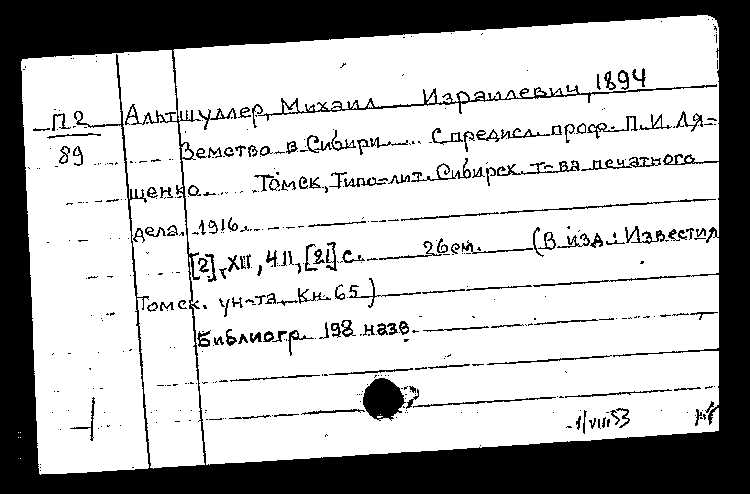 П2
89
Альтшуллер, Михаил Израилевич, 1894
Земство в Сибири.... С предисл. проф. П.И. Ля-
щенко. Томск, Типо-лит. Сибирск. т-ва печатного
дела. 1916.
[2], XIII, 411, [21] с. 26см. (В изд.: Известия
Томск. ун-та. Кн. 65)
Библиогр. 198 назв.
1/VIII 53